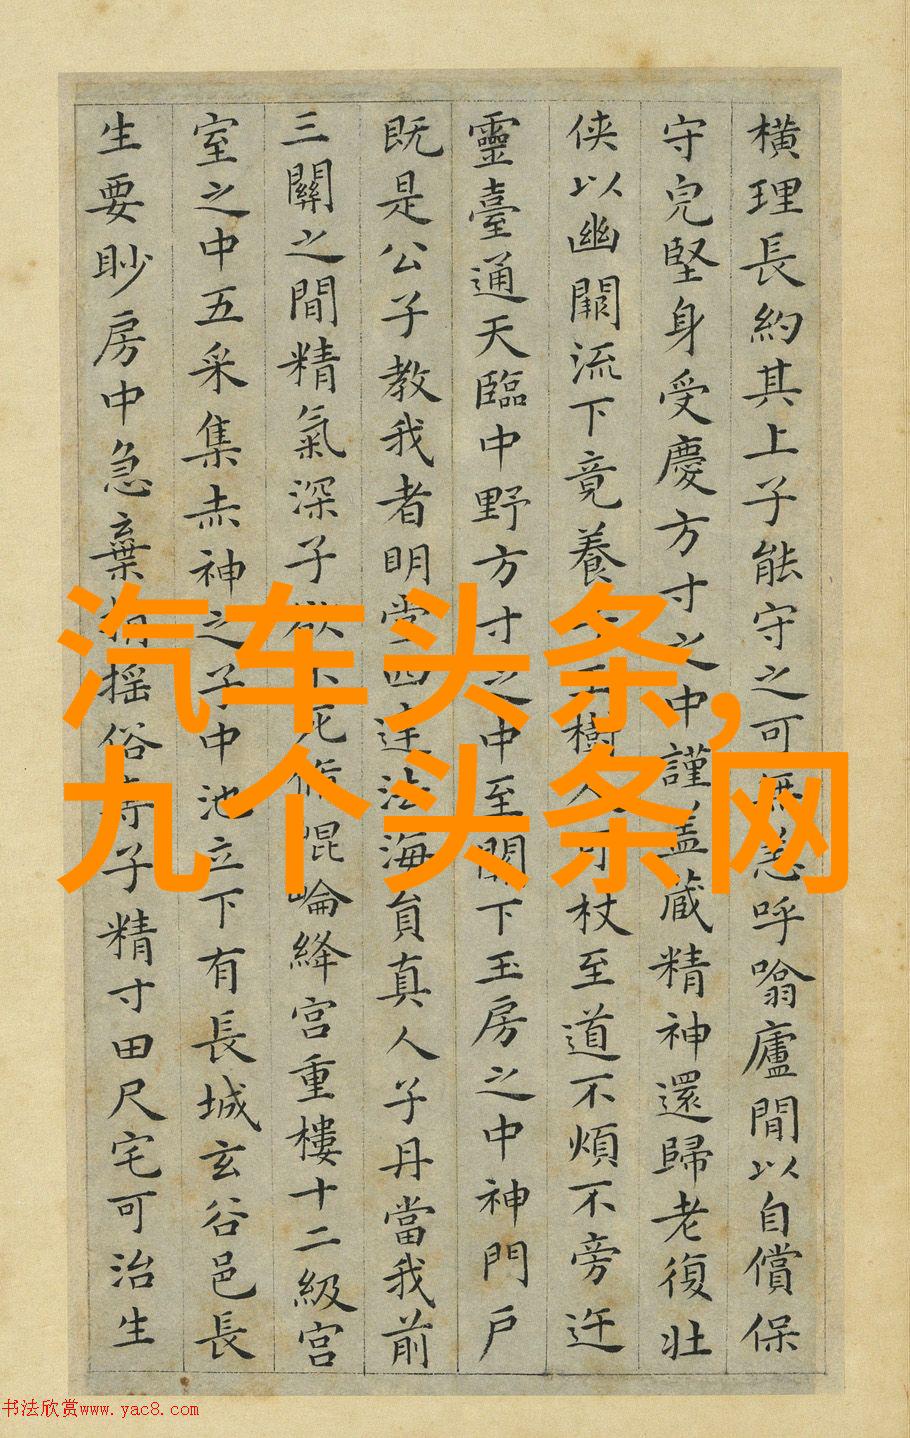 汽车头条,
九个头条网
橫理長約其上子能守之可無恙呼噏廬間以自償保
守皃堅身受慶方寸之中謹盖蔵精神還歸老復壯
侠以幽闕流下竟養樹可杖至道不煩不旁迕
靈臺通天臨中野方寸之中至闕下玉房之中神門戶
既是公子教我者明堂四达法海員真人子丹當我前
三關之間精氣深子欲不死脩崐崘絳宮重樓十二級宮
室之中五采集赤神之子中池立下有長城玄谷邑長
生要眇房中急棄捐搖俗專子精寸田尺宅可治生
书法欣赏www.yac8.com